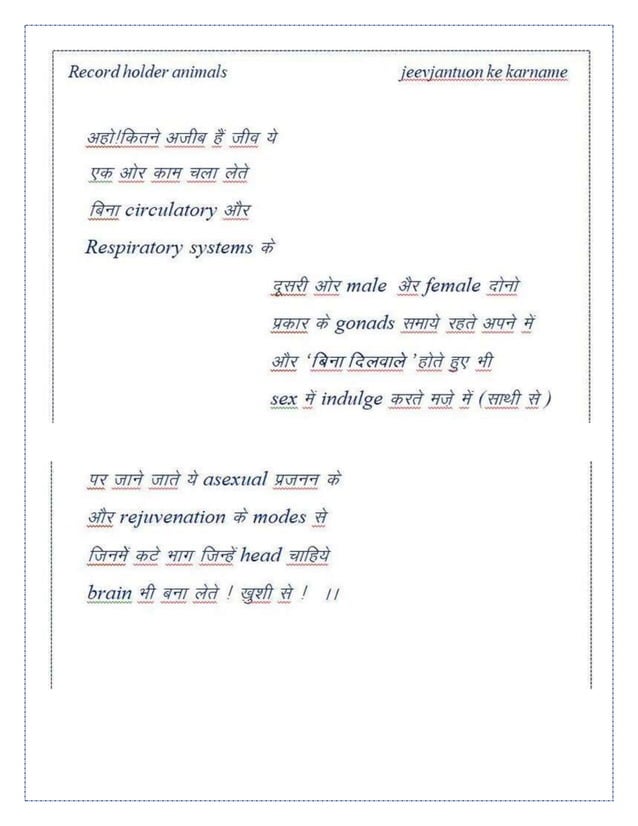 Record holder animals jeevjantuon ke karname
अहो!कितने अजीब हैं जीव ये
एक ओर काम चला लेते
बिना circulatory और
Respiratory systems के
दूसरी ओर male अैर female दोनो
प्रकार के gonads समाये रहते अपने में
और ‘बिना दिलवाले ’होते हुए भी
sex में indulge करते मजे में (साथी से )
पर जाने जाते ये asexual प्रजनन के
और rejuvenation के modes से
जिनमें कटे भाग जिन्हें head चाहिये
brain भी बना लेते ! खुशी से ! ।।